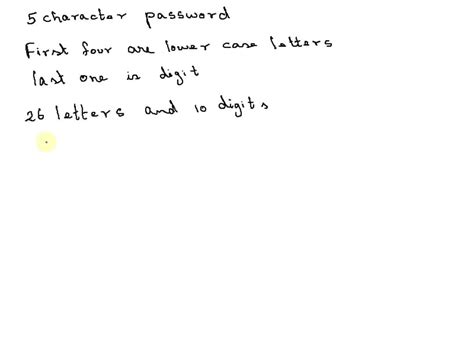 5 character password
First four are lower case letters
last one is digit
26 letters and 10 digits